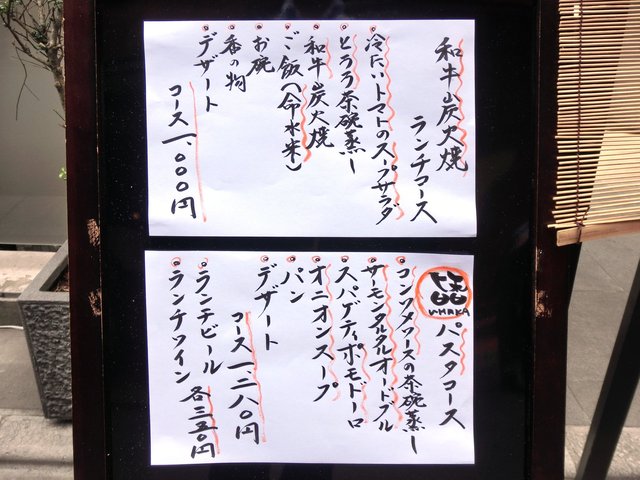 和牛炭火焼
ランチコース
冷たいトマトのスープサラダ
とろろ茶碗蒸し
和牛炭火焼
ご飯(命水米)
お碗
香の物
デザート
コース一、〇〇〇円
パスタコース
コンソメソースの茶碗蒸し
サーモンタルタルオードブル
スパゲティポモドーロ
オニオンスープ
パン
デザート
コース一、二八〇円
ランチビール
ランチワイン 各三五〇円